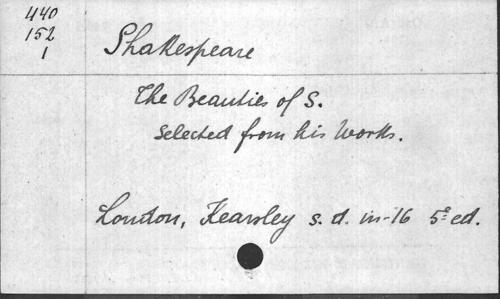 440
152
1
Shakespeare
The Beauties of S.
selected from his Works.
London, Kearsley s. d. in-16 5ᵉ ed.